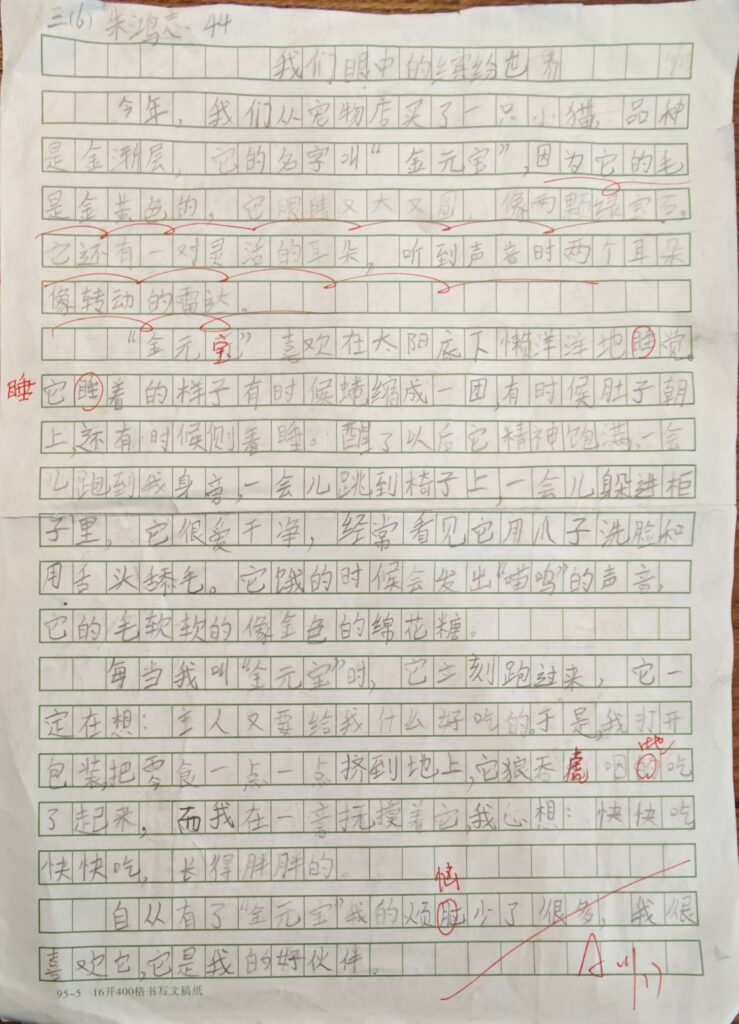 三(6) 朱鸿志 44
我们眼中的缤纷世界
今年，我们从宠物店买了一只小猫，品种
是金渐层，它的名字叫“金元宝”，因为它的毛
是金黄色的，它眼睛又大又圆，像两颗绿宝石。
它还有一对灵活的耳朵，听到声音时两个耳朵
像转动的雷达。
“金元宝”喜欢在太阳底下懒洋洋地睡觉。
睡 它睡着的样子有时候蜷缩成一团，有时候肚子朝
上，还有时候侧着睡。醒了以后它精神饱满，一会
儿跑到我身旁，一会儿跳到椅子上，一会儿躲进柜
子里，它很爱干净，经常看见它用爪子洗脸和
用舌头舔毛。它饿的时候会发出“喵呜”的声音，
它的毛软软的像金色的绵花糖。
每当我叫“金元宝”时，它立刻跑过来，它一
定在想：主人又要给我什么好吃的于是，我打开
地
包装，把零食一点一点挤到地上，它狼吞虎咽的吃
了起来，而我在一旁抚摸着它，我心想：快快吃
快快吃，长得胖胖的。
恼
自从有了“金元宝”我的烦脑少了很多，我很
喜欢它，它是我的好伙伴。
A 11/17
95-5 16开400格书写文稿纸